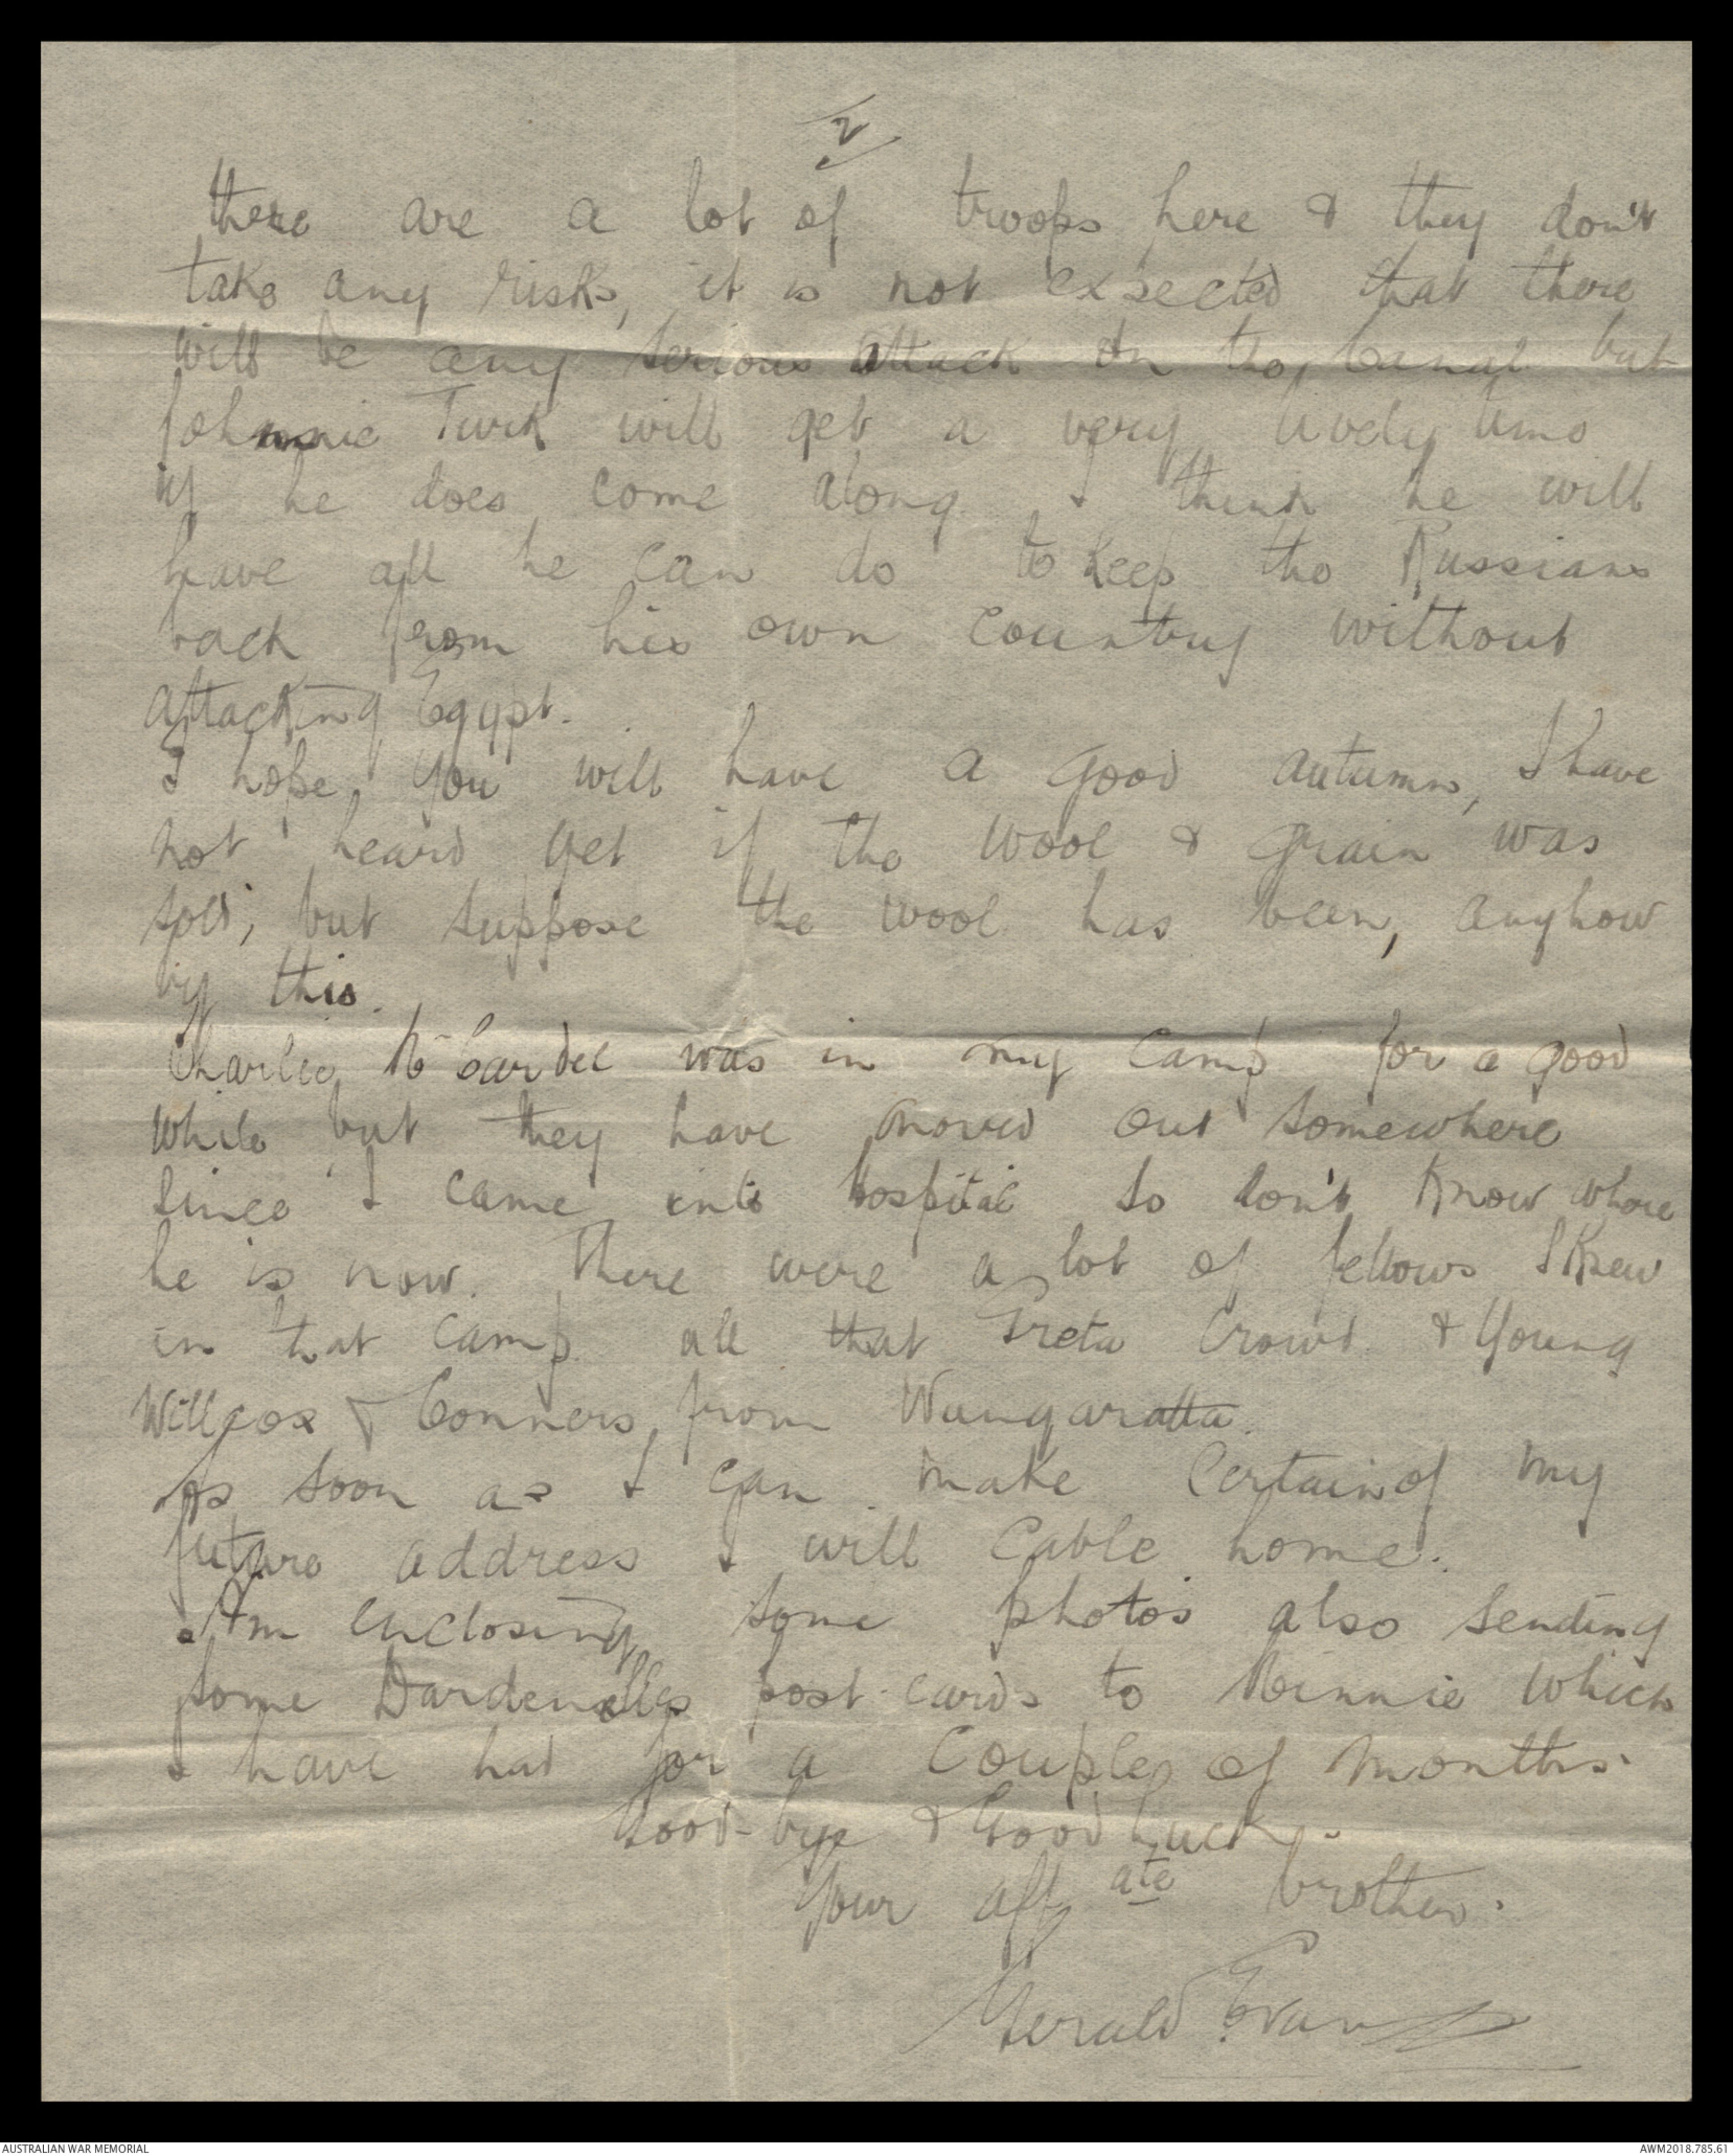 2
there are a lot of troops here & they don't
take any risks, it is not expected that there
will be any serious attack on the Canal but
Johnnie Turk will get a very lively time
if he does come along I think he will
have all he can do to keep the Russians
back from his own country without
attacking Egypt.
I hope you will have a good autumn, I have
not heard yet if the wool & grain was
sold, but suppose the wool has been, anyhow
by this.
Charlie was in my camp for a good
while but they have moved out somewhere
since I came into hospital so don't know where
he is now. There were a lot of fellows I knew
in that camp all that Greta crowd & Young
Willcox & Conners from Wangaratta.
As soon as I can make certain of my
future address I will cable home.
Am enclosing some photos also sending
some Dardenelles post-cards to Minnie which
I have had for a couple of months.
Good-bye & Good Luck.
Your aff ate brother.
Gerald Evans
AUSTRALIAN WAR MEMORIAL
AWM2018.785.61